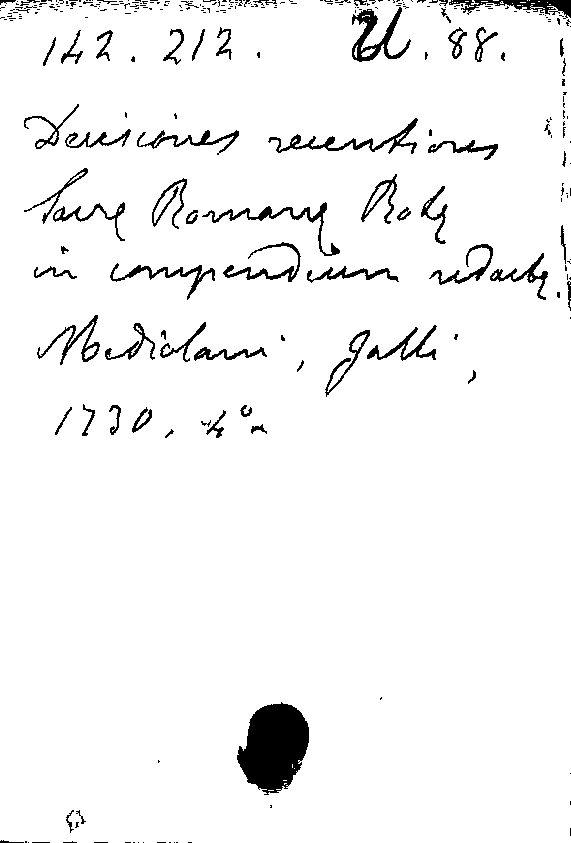 142.212. U.88.
Decisiones recentiores
Sacrę Romanę Rotę
in compendium redactę.
Mediolani, Galli,
1730, 4°